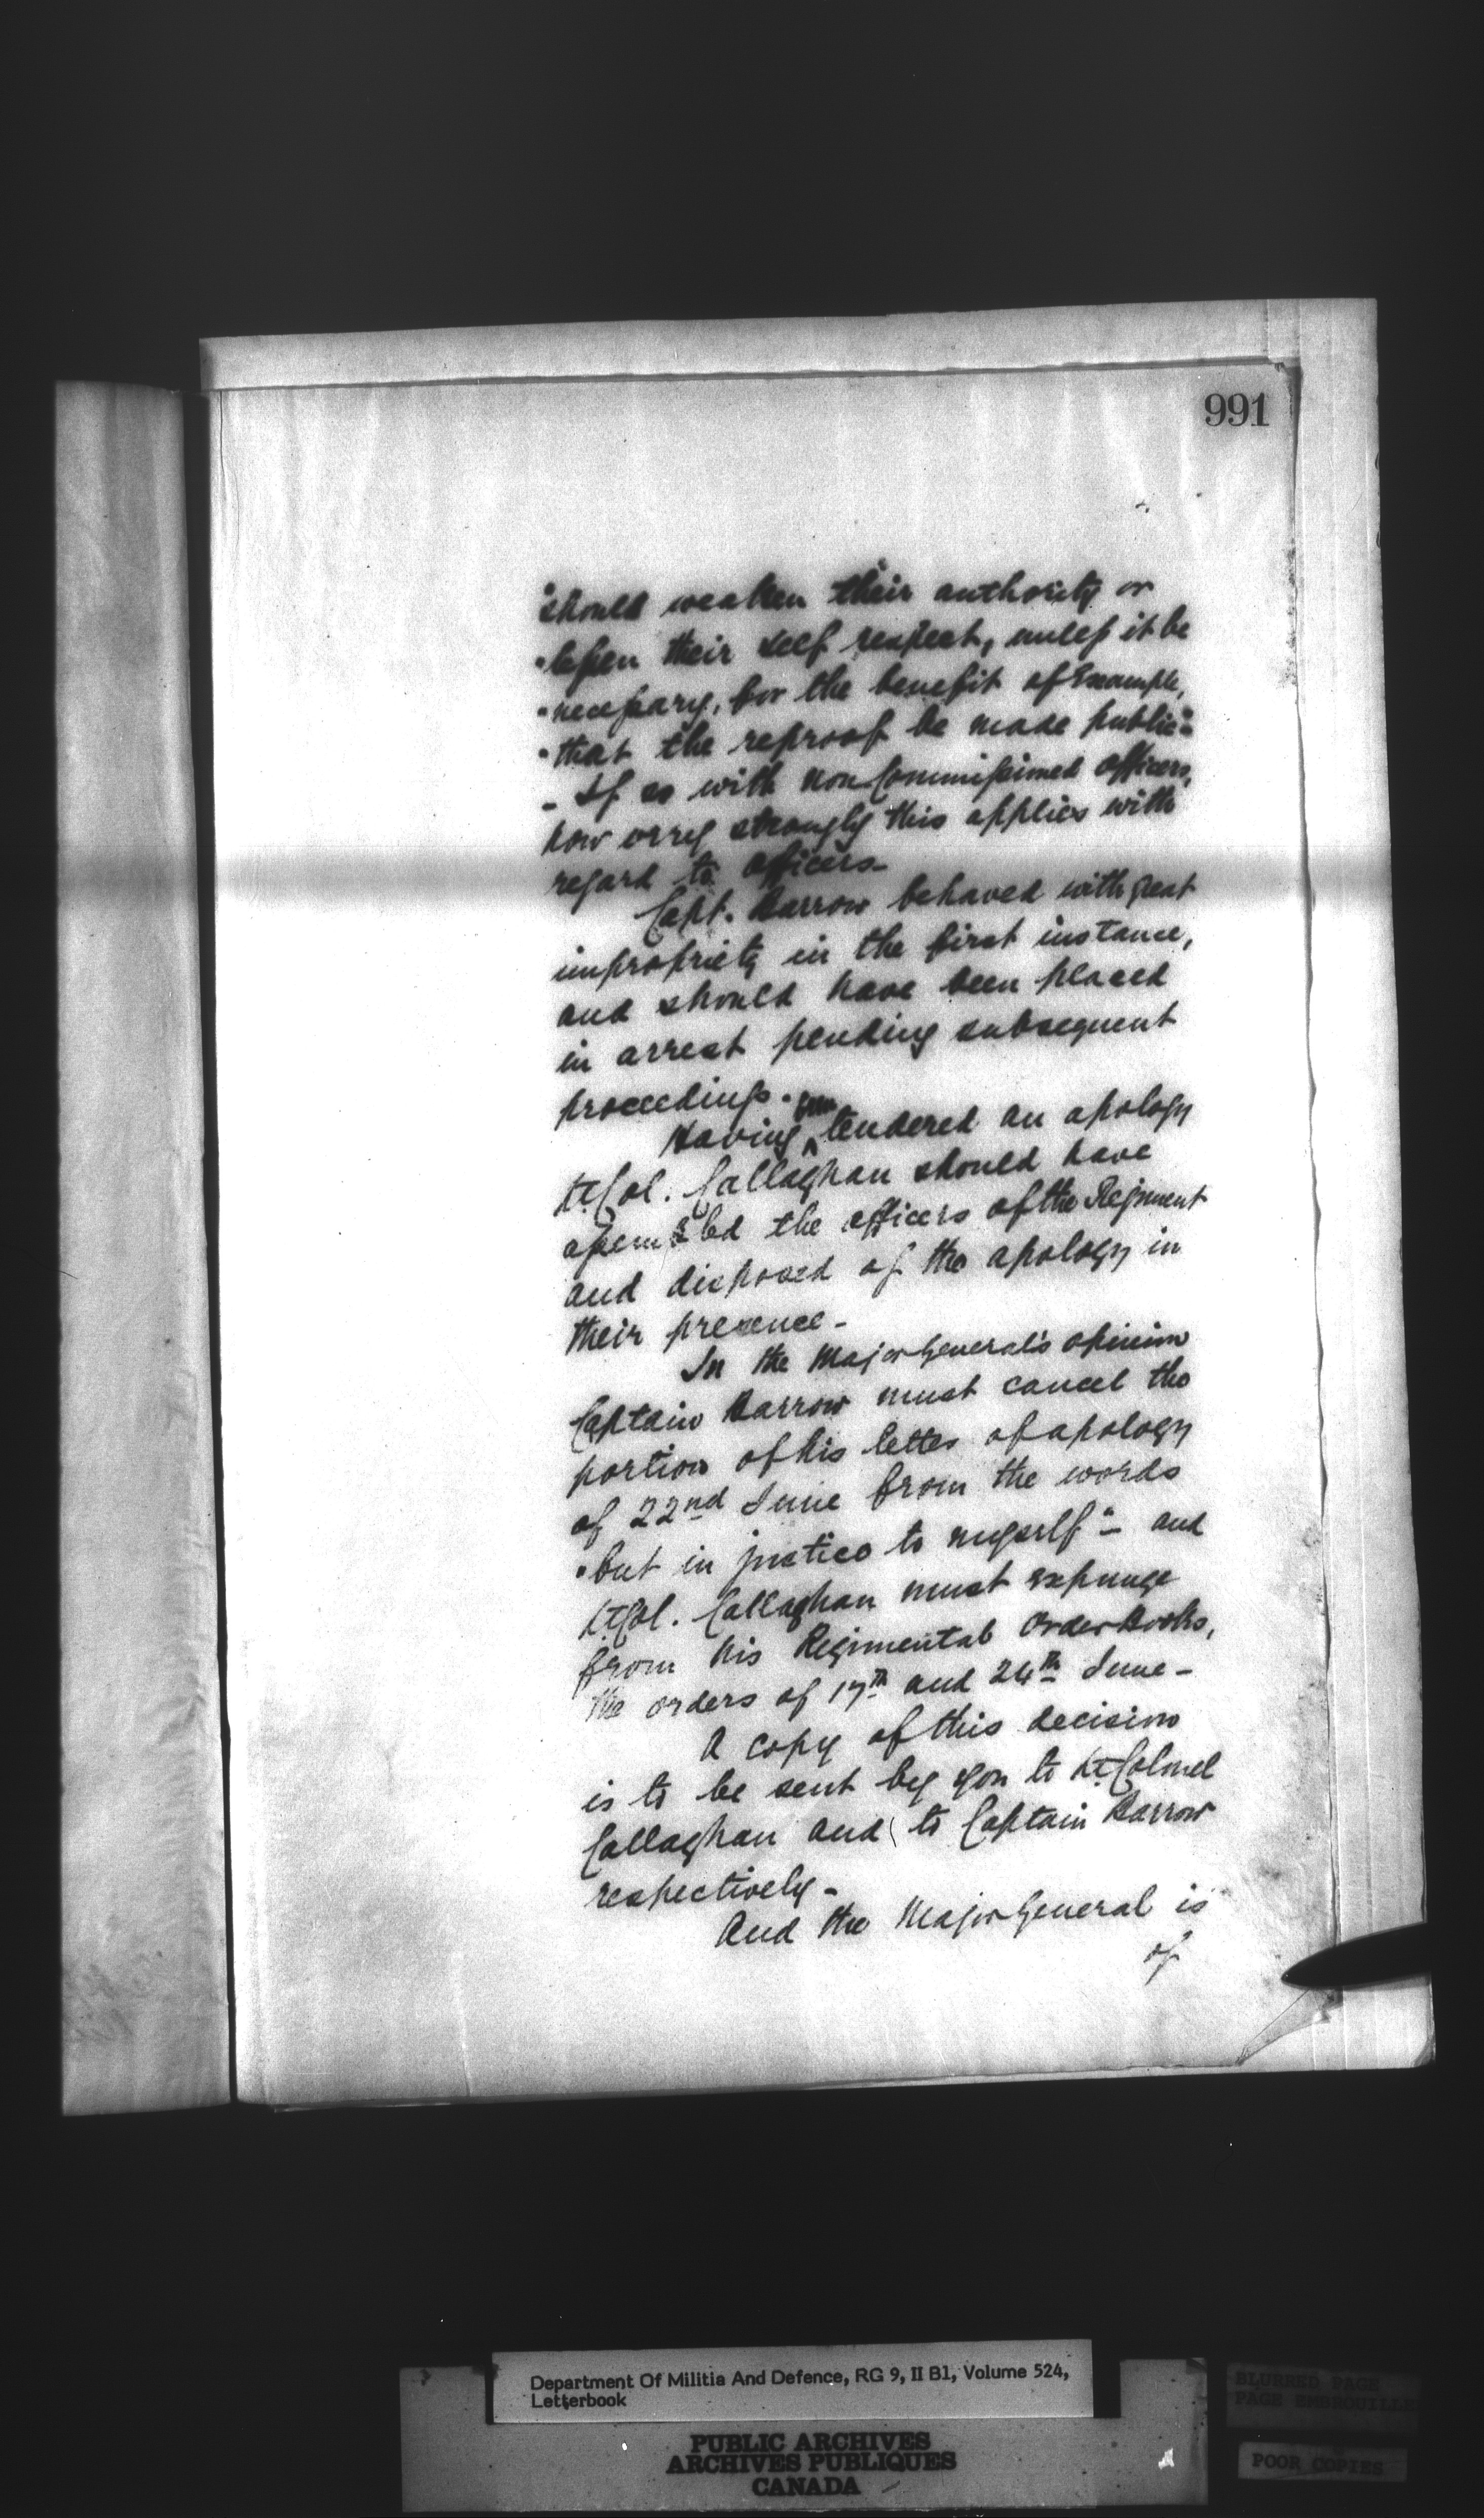 991
"should weaken their authority or
"lessen their self respect, unless it be
"necessary, for the benefit of Example,
"that the reproof be made public"
- If so with non Commissioned officers,
how very strongly this applies with
regard to officers-
Capt. Barrow behaved with great
impropriety in the first instance,
and should have been placed
in arrest pending subsequent
proceedings.
Having tendered an apology
Lt Col. Callaghan should have
assembled the officers of the Regiment
and disposed of the apology in
their presence-
In the Major General's opinion
Captain Barrow must cancel the
portion of his letter of apology
of 22nd June from the words
"but in justice to myself" - and
Lt Col. Callaghan must expunge
from his Regimental Order Books,
the orders of 17th and 24th June-
A copy of this decision
is to be sent by you to Lt Colonel
Callaghan and to Captain Barrow
respectively-
And the Major General is
of
Department Of Militia And Defence, RG 9, II B1, Volume 524,
Letterbook
PUBLIC ARCHIVES
ARCHIVES PUBLIQUES
CANADA
BLURRED PAGE
PAGE EMBROUILLE
POOR COPIES